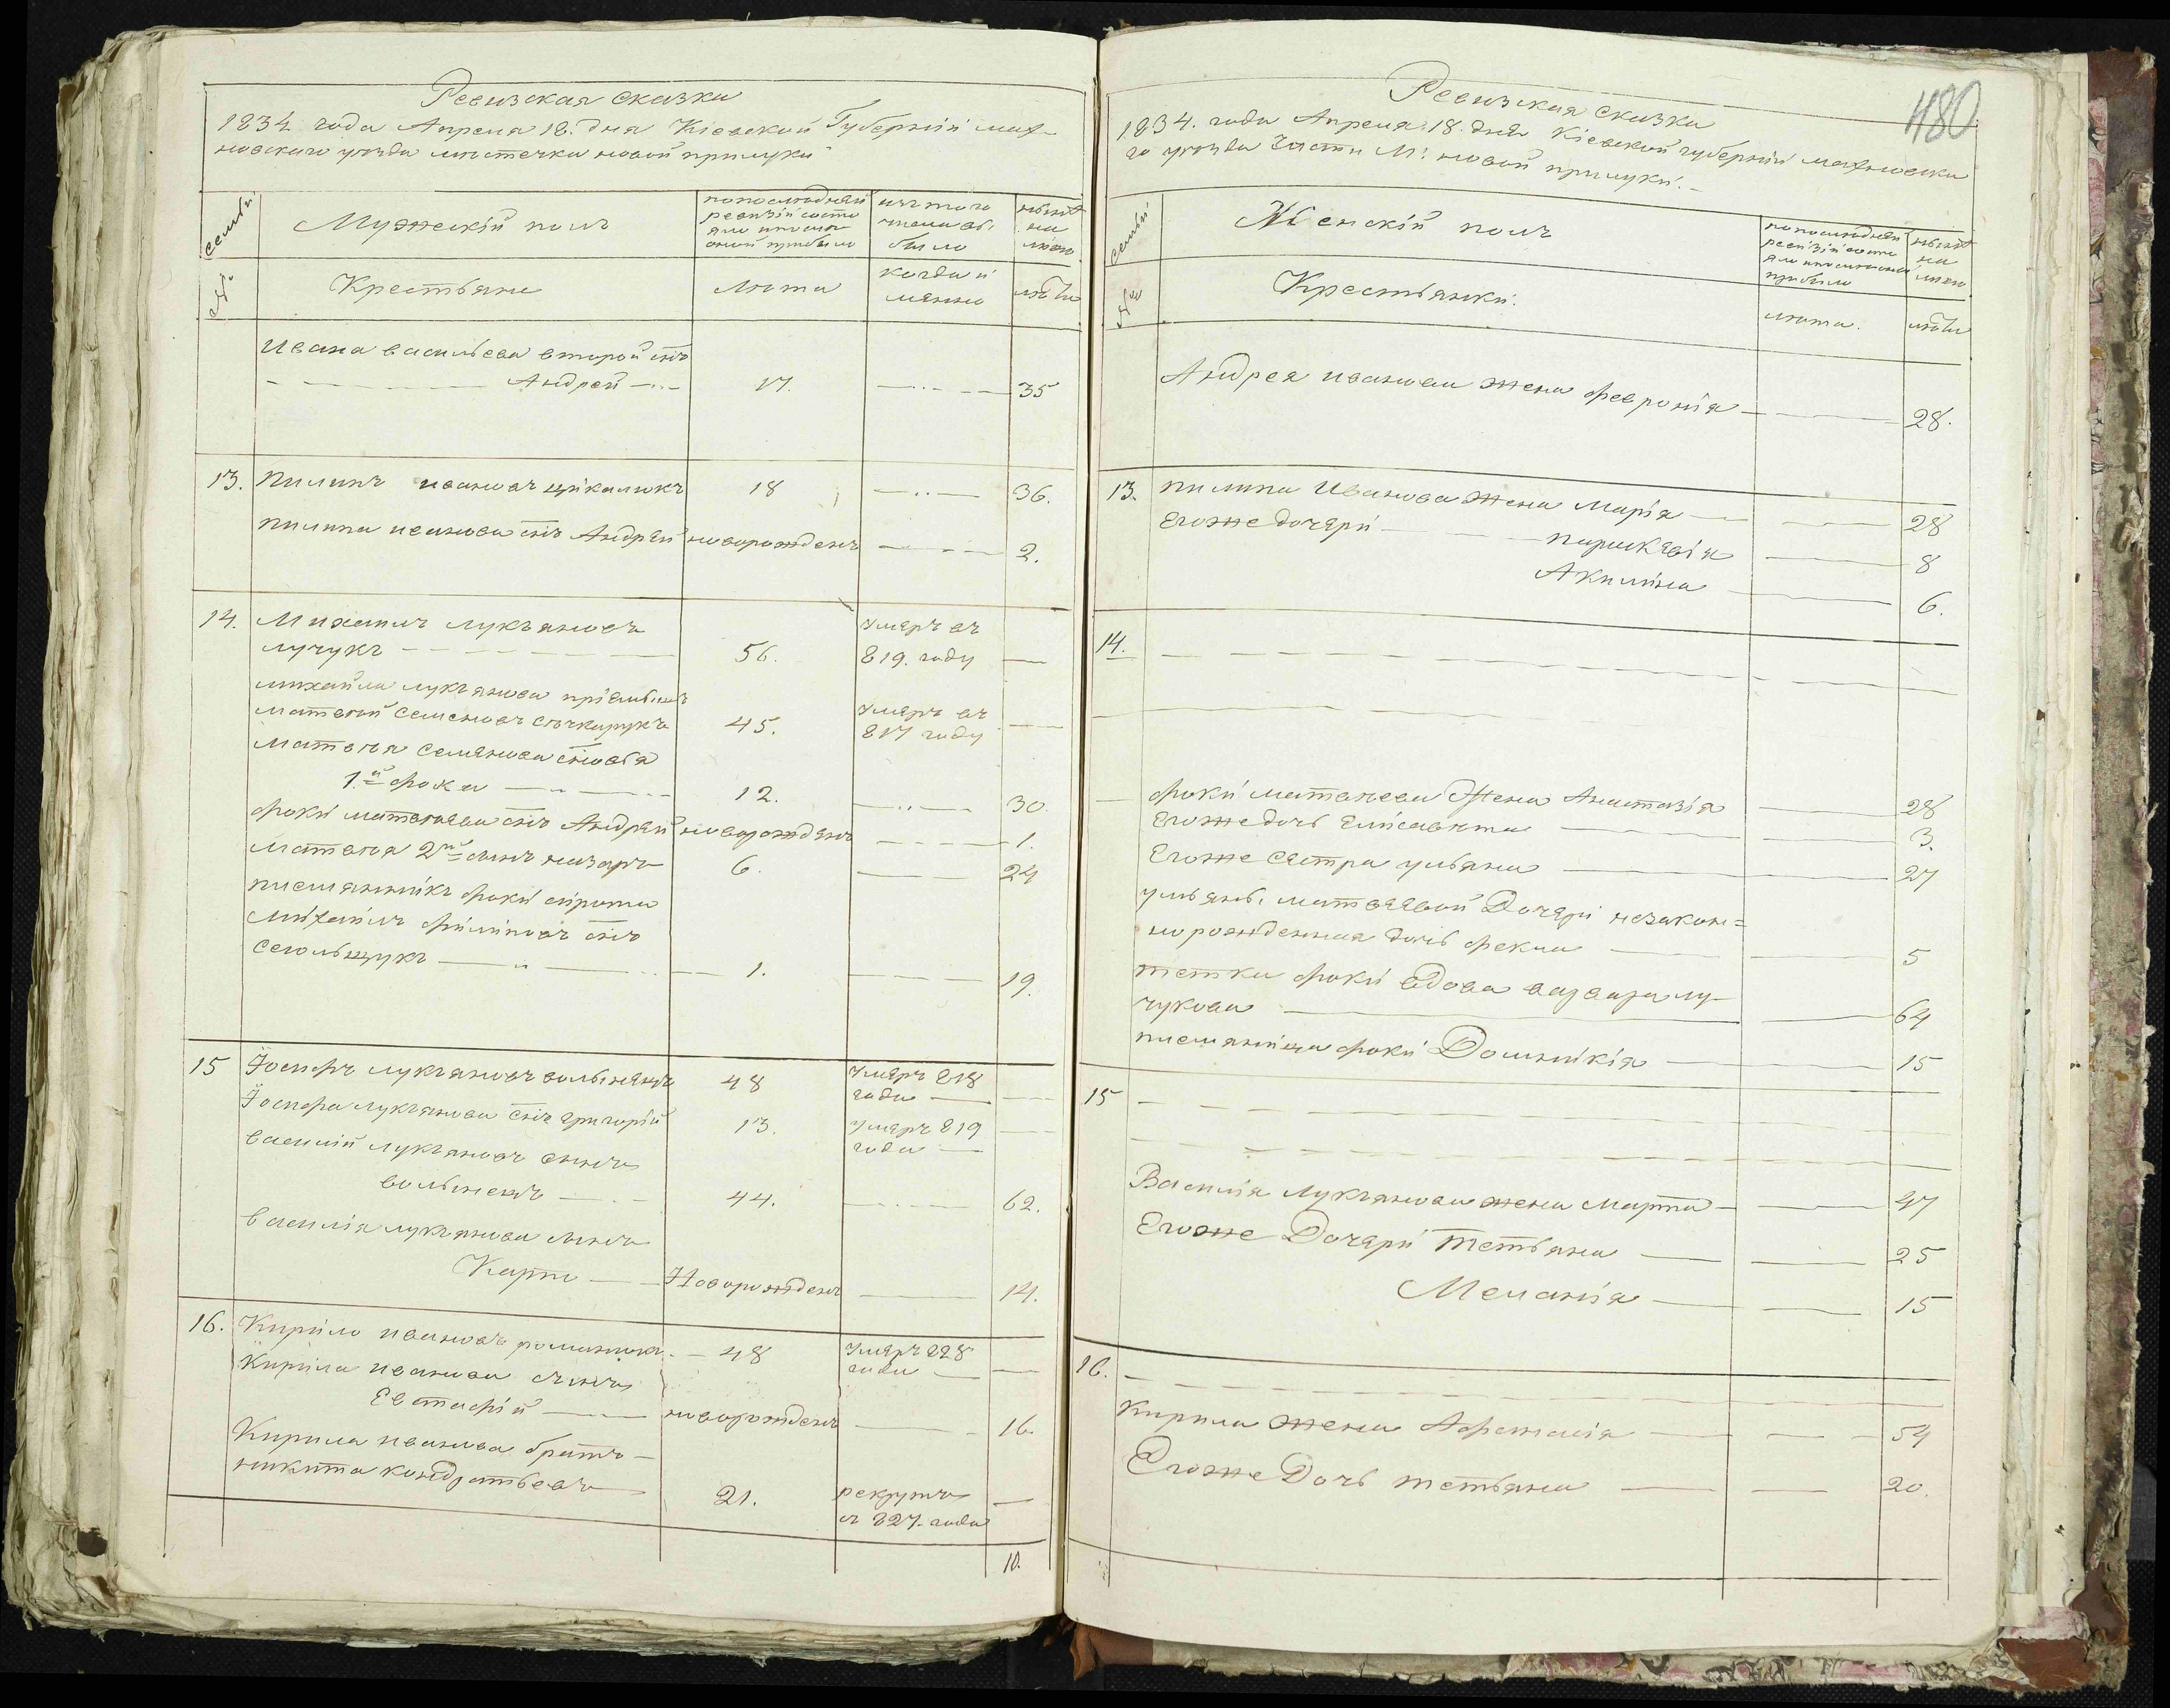 Ревизская сказка
1834 года Апреля 18. дня Кіевской Губерніи мах-
новскаго уѣзда мѣстечка новой прилуки
семьи
Мужескій полъ
по последней
ревизіи состо
яло и после
оной прибыло
изъ того
числа вы
было
нынѣ
на
лицо
№
Крестьяне
Лѣта
когда и
мянно
лѣта
Ивана васильева второй снъ
Андрей
17.
35
13. пилипъ ивановъ цѣкалюкъ 18 36.
пилипа иванова снъ Андрей новорожденъ 2.
14. Михаилъ лукьяновъ
лучукъ 56. Умеръ въ 819. году
михайла лукьянова пріемышъ
матвей семеновъ 45. Умеръ въ 817 году
матвея семенова сновья
1й фока 12. 30.
фоки матвеева снъ Андрей новорожденъ 1.
матвея 2й сынъ назаръ 6. 24
племянникъ фоки сирота
михаилъ филиповъ снъ
1. 19.
15 Іосифъ лукьяновъ волынецъ 48 умеръ 818 года
Іосифа лукьянова снъ григорій 13. умеръ 819 года
василій лукьяновъ сынъ
волынецъ 44. 62.
василія лукьянова сынъ
Карпъ Новорожденъ 14.
16. Кирило ивановъ романюкъ 48 умеръ 828 года
Кирила иванова сынъ
Евстафій новорожденъ 16.
Кирила иванова братъ
никита кондратьевъ 21. рекрутъ
съ 827. года
10.
480
Ревизская сказка
1834. года Апреля 18. дня Кіевской губерніи махновска
го уѣзда части М: новой прилуки.
семьи
Женскій полъ
по последней
ревизіи состо
яло и после оной
прибыло
нынѣ
на
лицо
№
Крестьянки.
лѣта.
лѣта
Андрея иванова жена февронія 28.
13. пилипа Иванова жена Марія 28
Егоже дочери параскевія 8
Акилина 6.
14.
фоки матвеева Жена Анастазія 28
Егоже дочь Елисавета 3.
Егоже сестра ульяна 27
ульяны матвеевой Дочери незакон=
норожденная дочь фекла 5
тетка фоки вдова варвара лу-
чукова 64
племянница фоки Домникія 15
15
Василія Лукьянова жена Марта 47
Егоже Дочери тетьяна 25
Меланія 15
16.
Кирила жена Афанасія 54
Егоже Дочь тетьяна 20.